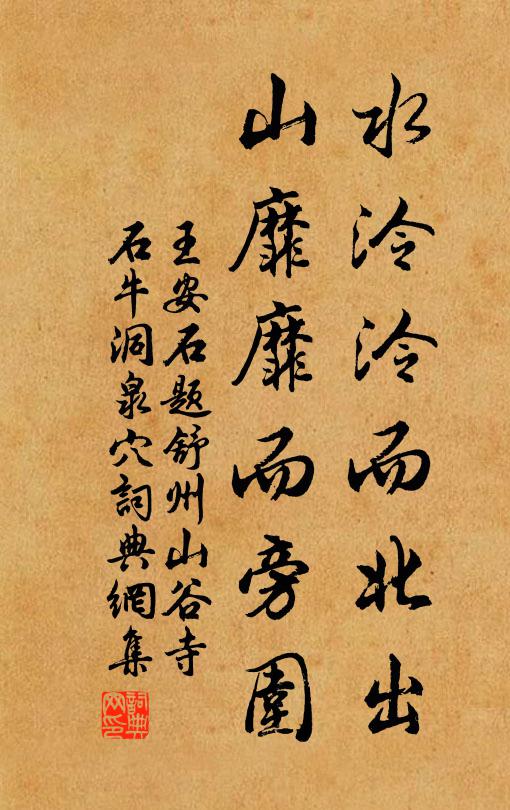 水泠泠而北出
山靡靡而旁圍
王安石题舒州山谷寺
石牛洞泉穴詞典網集
詞典
网印